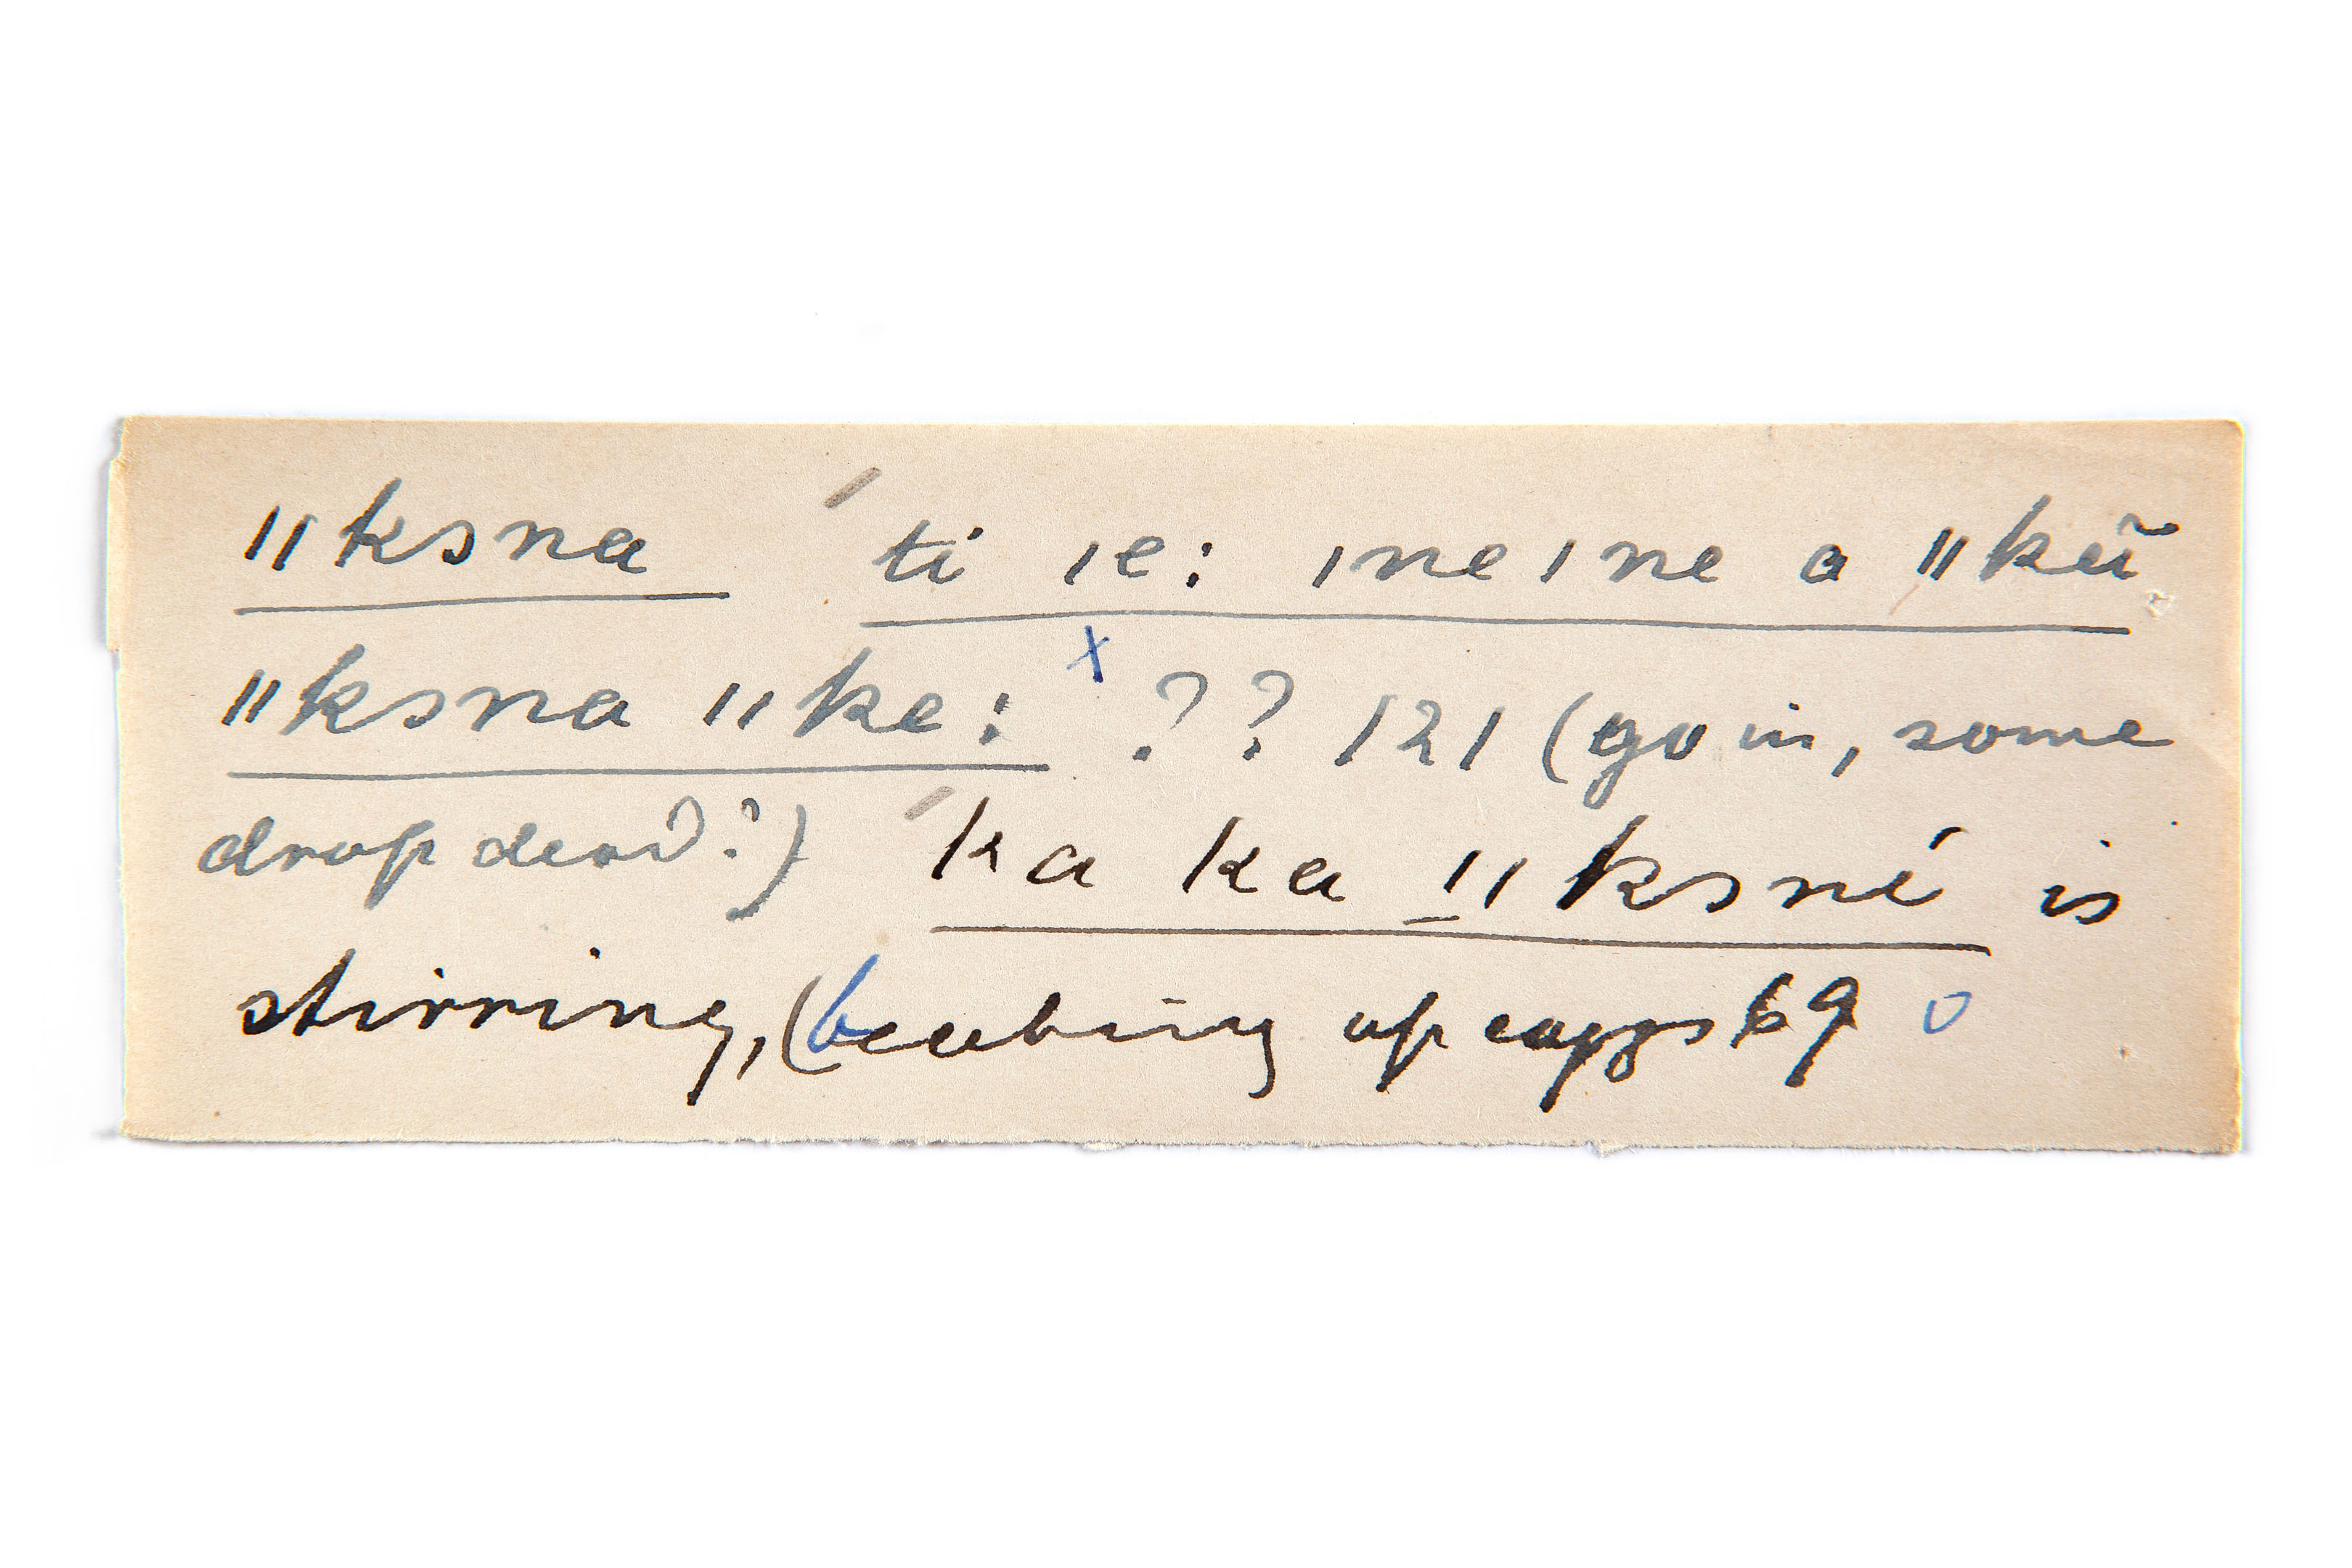 ǁksna ti ǀe: ǀneǀne a ǁkeĩ
ǁksna ǁke: x ? ? 121 (go in, some
drop dead?) ka ka ǁksné is
stirring, (beating up eggs 69 o